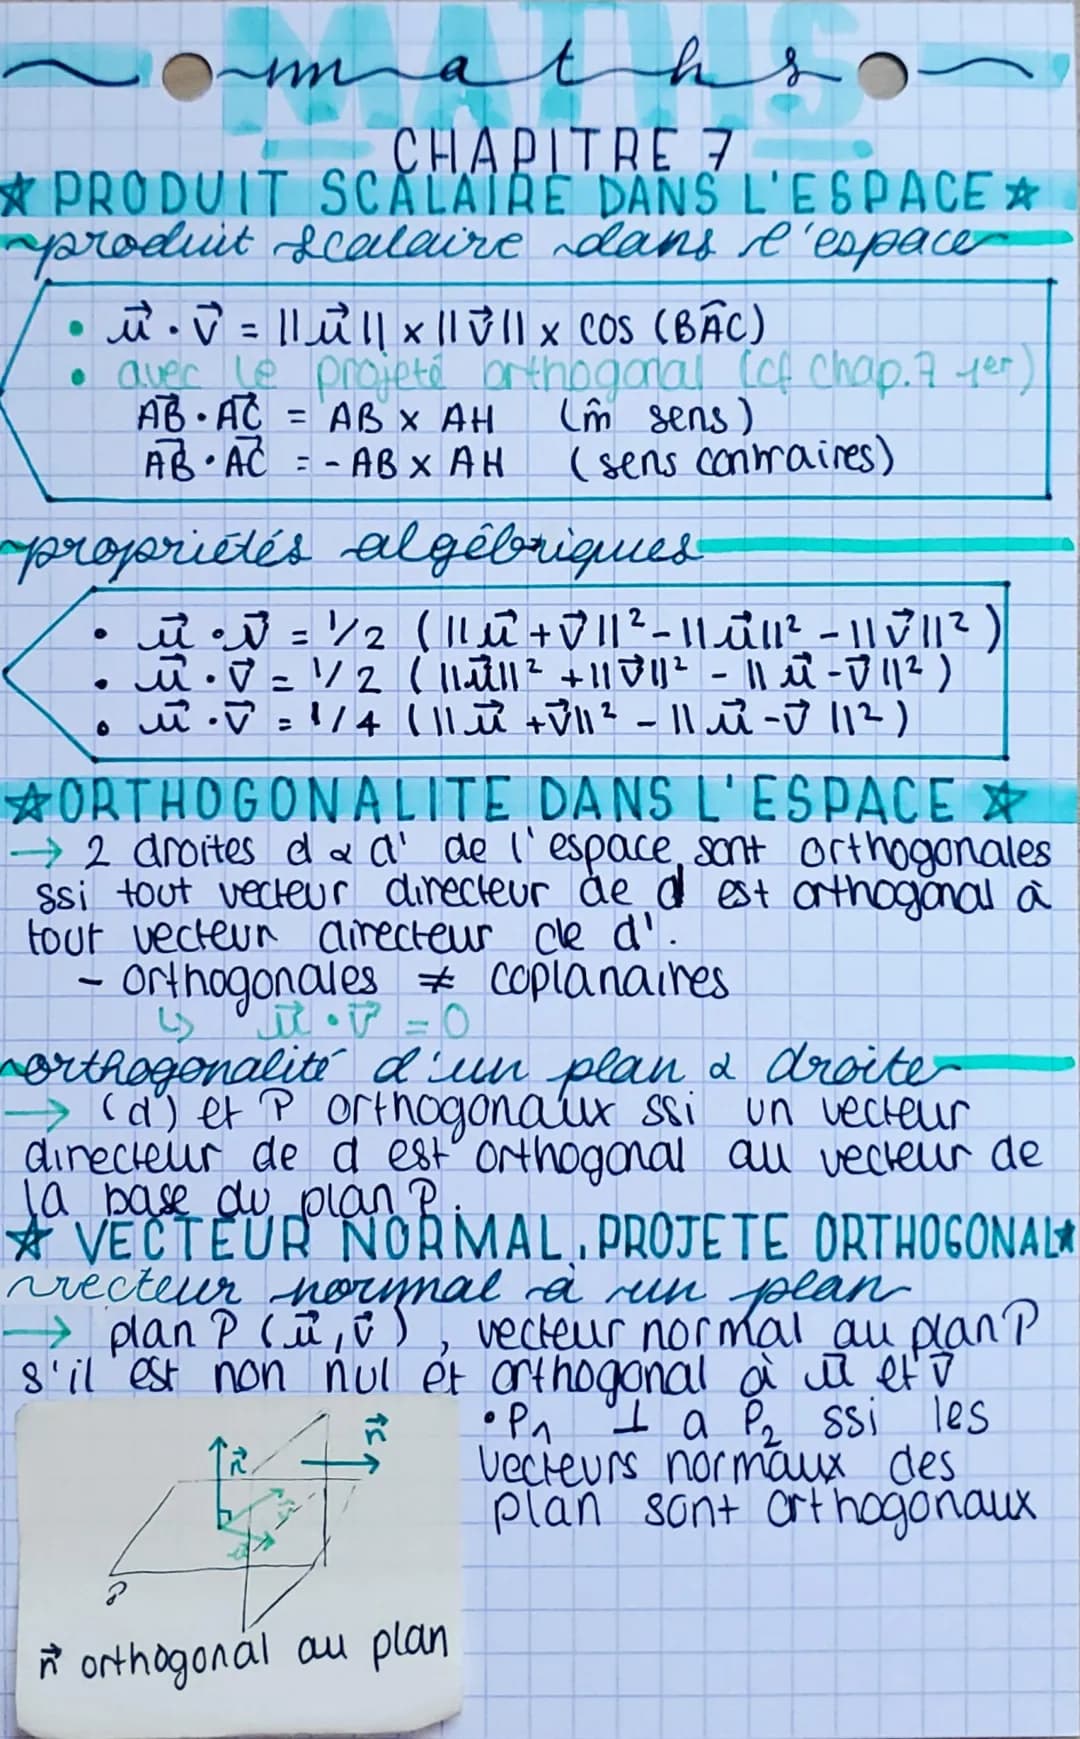 MATHS
maths
CHAPITRE 7
☆ PRODUIT SCALAIRE DANS L'ESPACE ☆
produit scalaire dans l'espace
• u⃗ · v⃗ = ||u⃗|| x ||v⃗|| x cos (BÂC)
• avec le projeté orthogonal (cf chap.7 1er)
A⃗B · A⃗C = AB x AH (m̂ sens)
A⃗B · A⃗C = - AB x AH (sens contraires)
propriétés algébriques
• u⃗ · v⃗ = 1/2 (||u⃗ + v⃗||² - ||u⃗||² - ||v⃗||²)
• u⃗ · v⃗ = 1/2 (||u⃗||² + ||v⃗||² - ||u⃗ - v⃗||²)
• u⃗ · v⃗ = 1/4 (||u⃗ + v⃗||² - ||u⃗ - v⃗||²)
☆ ORTHOGONALITE DANS L'ESPACE ☆
→ 2 droites d & d' de l'espace sont orthogonales
ssi tout vecteur directeur de d est orthogonal à
tout vecteur directeur de d'.
- orthogonales ≠ coplanaires
↳ u⃗ · v⃗ = 0
orthogonalité d'un plan & droite
→ (d) et P orthogonaux ssi un vecteur
directeur de d est orthogonal au vecteur de
la base du plan P.
☆ VECTEUR NORMAL, PROJETE ORTHOGONAL ☆
vecteur normal à un plan
→ plan P (u⃗, v⃗), vecteur normal au plan P
s'il est non nul et orthogonal à u⃗ et v⃗
• P₁ ⊥ a P₂ ssi les
vecteurs normaux des
plan sont orthogonaux
n⃗
n⃗
v⃗
u⃗
P
n⃗ orthogonal au plan